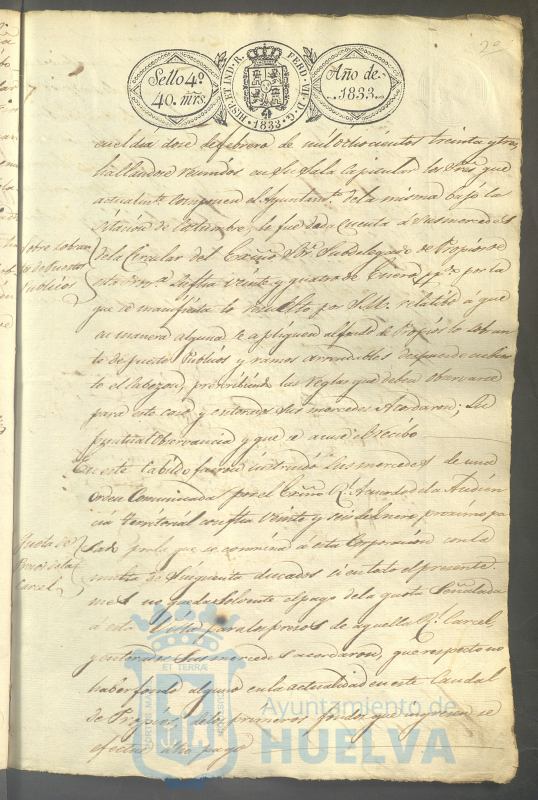 2º
Sello 4º
40. mrs.
HISP. ET IND. R. FERD. VII. D. G.
1833
Año de
1833.
en el dia doce de febrero de mil ochocientos treinta y tres
hallandose reunidos en su Sala Capitular los Sres. que
actualmte. componen el Ayuntamto. de la misma bajo la
citacion de costumbre, le fue dada cuenta á sus mercedes
de la Circular del Exmo. Sr. Subdelegado de Propios de
Sobre sobran
tes de puestos
Publicos
fha veinte y quatro de Enero ppo. por la
que se manifiesta lo resuelto por S.M. relatibo á que
en manera alguna se apliquen al fondo de Propios lo sobran
te de puestos Publicos y ramos arrendables despues de cubier
to el Cabezon, prescribiendo las reglas que deben observarse
para este caso y enterados sus mercedes Acordaron; Su
puntual observancia y que se acuse el recibo
En este Cabildo fueron instruidos sus mercedes de una
orden Comunicada por el Exmo. Rl. Acuerdo de la Audien
cia territorial con fha veinte y seis de Enero proximo pa
Quota de
Presos de la
Carcel
sado por la que se conmina á esta Corporacion con la
multa de cinquenta ducados si en todo el presente
mes no queda solvente el pago de la quota señalada
á esta Villa para los presos de aquella Rl. Carcel,
y enterados sus mercedes acordaron, que respecto no
haber fondo alguno en la actualidad en este Caudal
de Propios, de los primeros fondos que ingresen se
efectue dho pago
ET TERRÆ
Ayuntamiento de
HUELVA